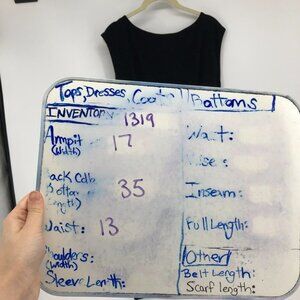 Tops, Dresses, Coats
INVENTORY 1319
Armpit 17
(Width)
Back Collar 35
Bottom
(Length)
Waist: 13
Shoulders:
(Width)
Sleeve Length:
Bottoms
Waist:
Rise:
Inseam:
Full Length:
Other
Belt Length:
Scarf length: